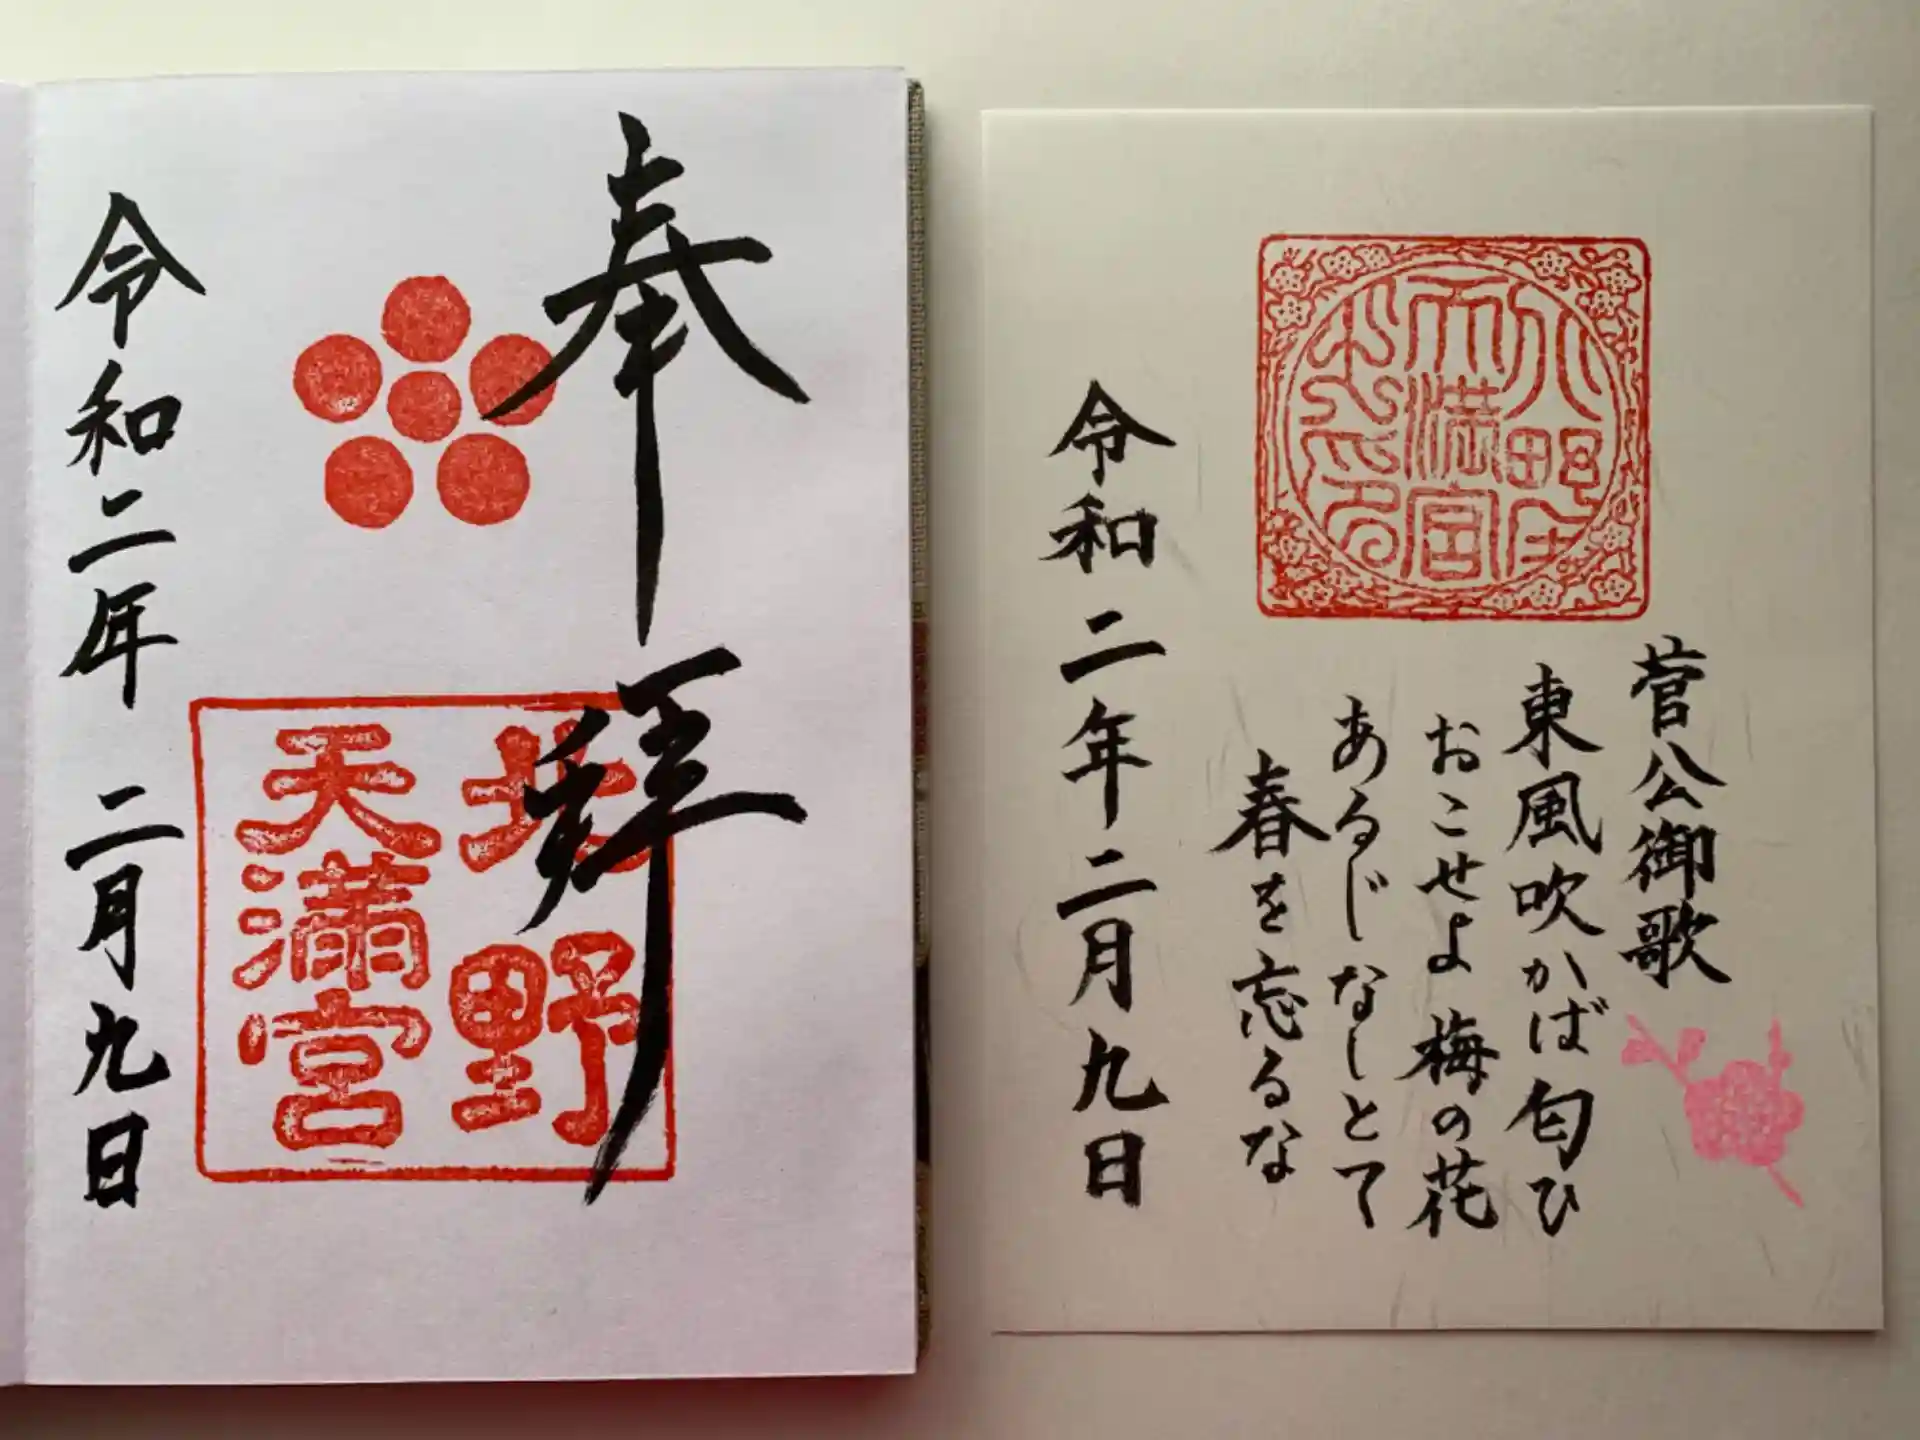 奉拝
北野
天満宮
令和二年 二月九日
菅公御歌
東風吹かば匂ひ
おこせよ梅の花
あるじなしとて
春を忘るな
令和二年二月九日
天満宮